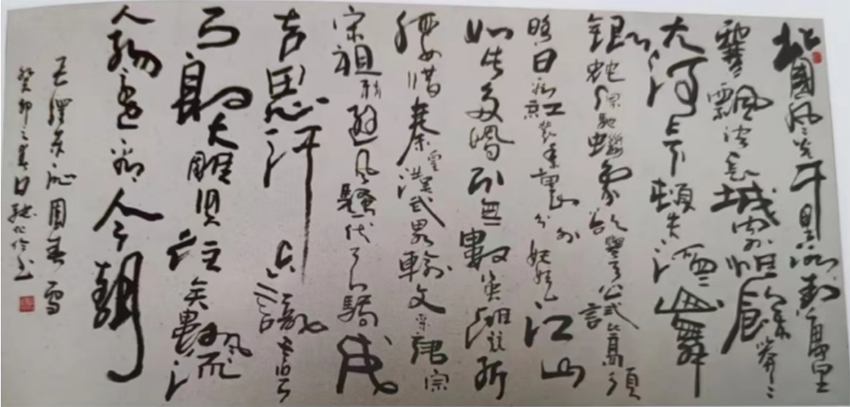 北国风光千里冰封万里
雪飘望长城内外惟余莽莽
大河上下顿失滔滔山舞
银蛇原驰蜡象欲与天公试比高须
晴日看红装素裹分外妖娆江山
如此多娇引无数英雄竞折
腰惜秦皇汉武略输文采唐宗
宋祖稍逊风骚一代天骄成
吉思汗只识弯
弓射大雕俱往矣数风流
人物还看今朝
毛泽东沁园春雪
癸卯之春日